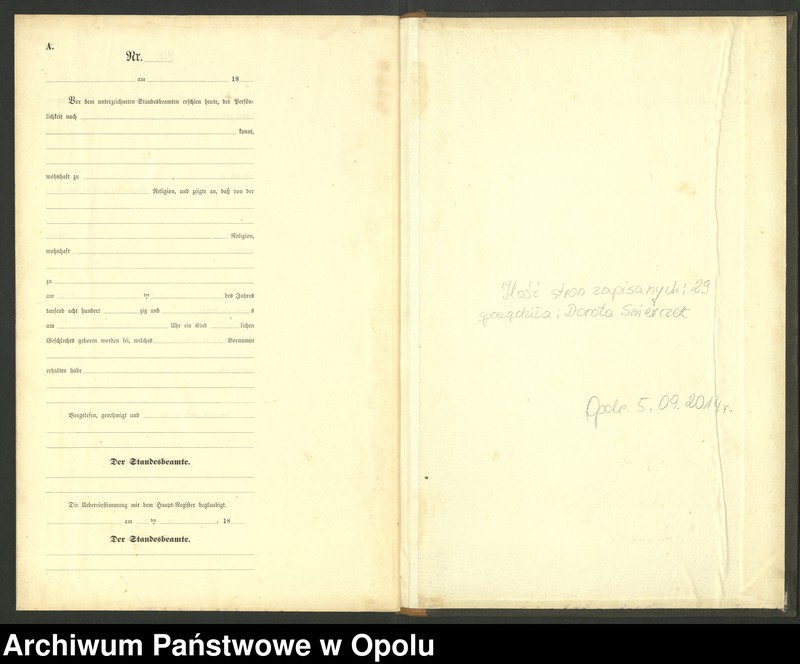 A.
Nr.
am 18
Vor dem unterzeichneten Standesbeamten erschien heute, der Persön-
lichkeit nach
kannt,
wohnhaft zu
Religion, und zeigte an, daß von der
Religion,
wohnhaft
zu
am ten des Jahres
tausend acht hundert zig und s
um Uhr ein Kind lichen
Geschlechts geboren worden sei, welches Vornamen
erhalten habe
Vorgelesen, genehmigt und
Der Standesbeamte.
Die Uebereinstimmung mit dem Haupt-Register beglaubigt.
am ten 18
Der Standesbeamte.
Ilość stron zapisanych: 29
sporządziła: Dorota Smierczek
Opole 5.09.2014 r.
Archiwum Państwowe w Opolu